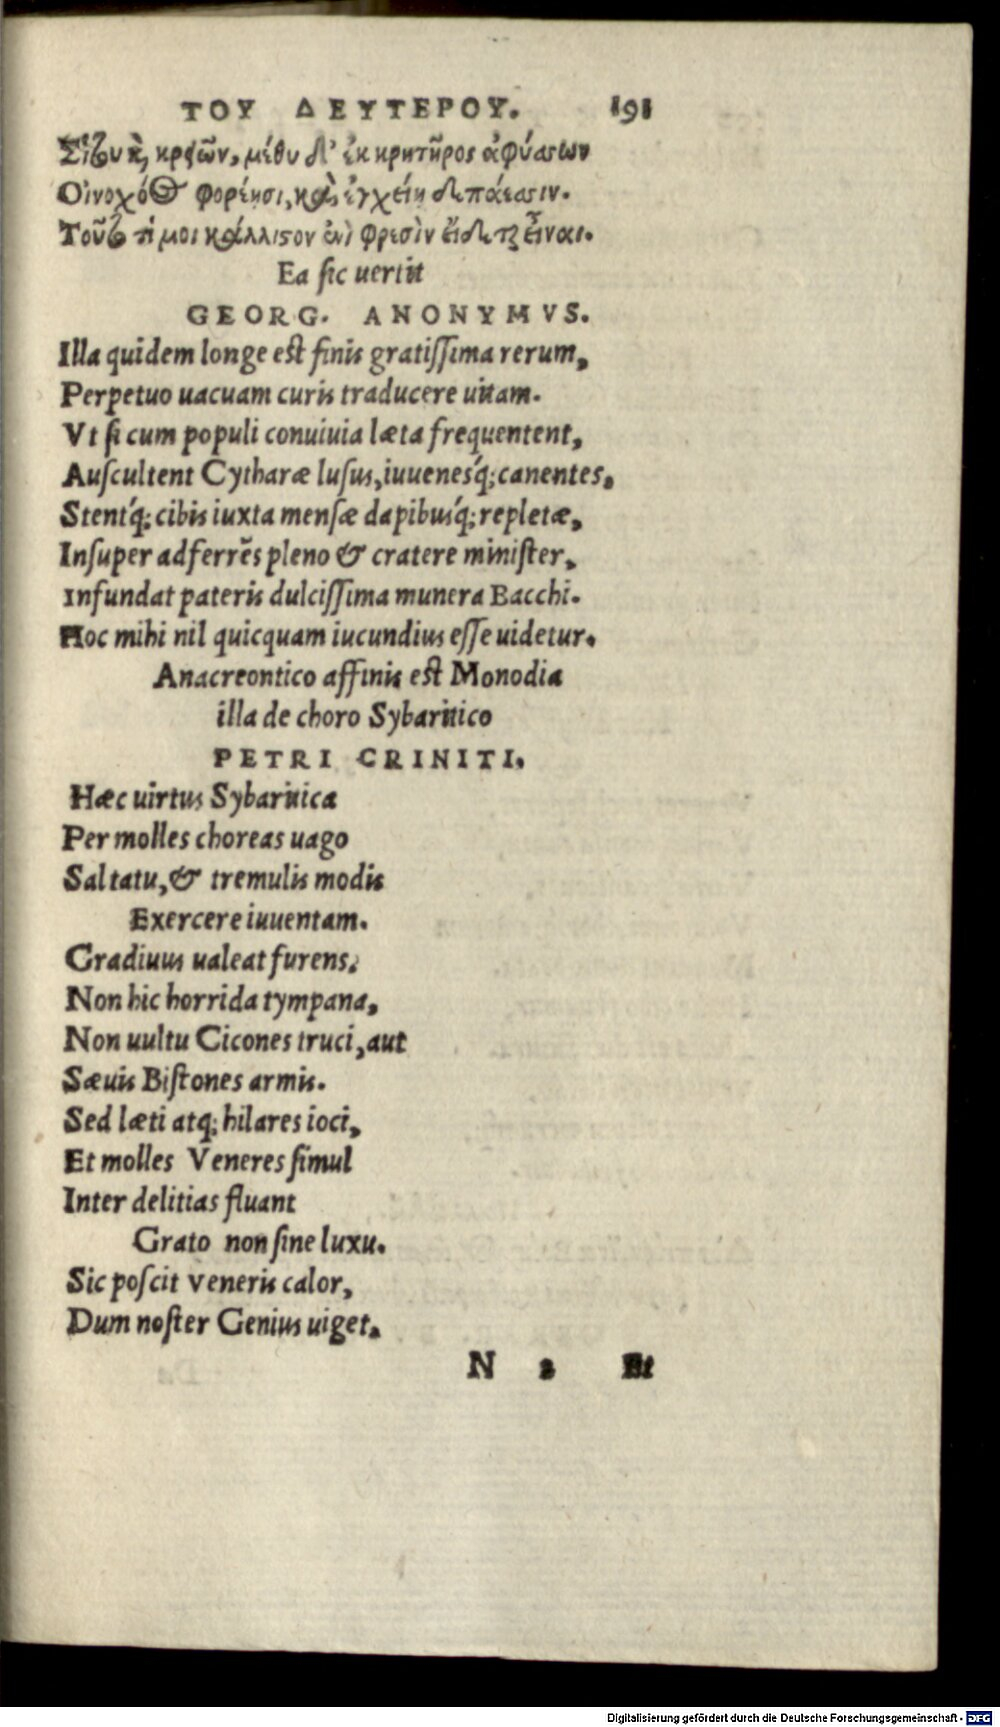 ΤΟΥ ΔΕΥΤΕΡΟΥ. 191
Σίτου κὶ κρειῶν, μέθυ δ' ἐκ κρητῆρος ἀφύασων
Οἰνοχόος φορέησι, καὶ ἐγχείη δεπάεασιν.
Τοῦτο τί μοι κάλλιστον ἐνὶ φρεσὶν εἴδεται εἶναι.
Ea sic uertit
GEORG. ANONYMVS.
Illa quidem longe est finis gratissima rerum,
Perpetuo uacuam curis traducere uitam.
Vt si cum populi conuiuia læta frequentent,
Auscultent Cytharæ lusus, iuuenesq́; canentes,
Stentq́; cibis iuxta mensæ dapibusq́; repletæ,
Insuper adferrẽs pleno & cratere minister,
Infundat pateris dulcissima munera Bacchi.
Hoc mihi nil quicquam iucundius esse uidetur.
Anacreontico affinis est Monodia
illa de choro Sybaritico
PETRI CRINITI.
Hæc uirtus Sybaritica
Per molles choreas uago
Saltatu, & tremulis modis
Exercere iuuentam.
Gradiuus ualeat furens.
Non hic horrida tympana,
Non uultu Cicones truci, aut
Sæuis Bistones armis.
Sed læti atq; hilares ioci,
Et molles Veneres simul
Inter delitias fluant
Grato non sine luxu.
Sic poscit veneris calor,
Dum noster Genius uiget.
N 2 Et
Digitalisierung gefördert durch die Deutsche Forschungsgemeinschaft - DFG